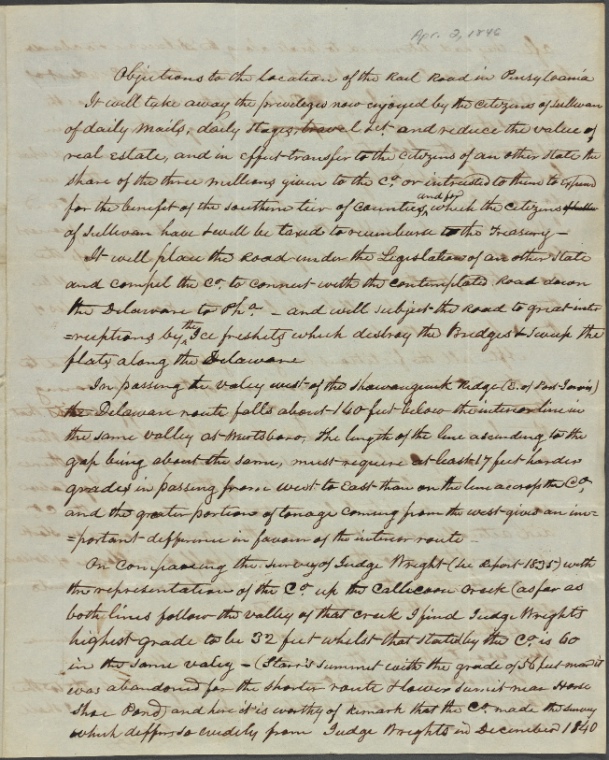 Apr. 2, 1846
Objections to the location of the Rail Road in Pensylvania
It will take away the priveleges now enjoyed by the Citizens of Sullivan
of daily mails, daily Stages, travel &ct and reduce the value of
real estate, and in effect transfer to the Citizens of an other State the
share of the three millions given to the Co. or intrusted to them to expend
for the benefit of the southern tier of Counties, and for which the Citizens
of Sullivan have & will be taxed to reemburse the Treasury –
It will place the Road under the Legislation of an other State
and compel the Co. to connect with the contemplated Road down
the Delaware to Pha. – and will subject the Road to great inter
=ruptions by the Ice freshets which destroy the Bridges & sweep the
flats along the Delaware
In passing the valey west of the Shawangunk Ridge (E. of Port Jarvis)
the Delaware route falls about 140 feet below the interior line in
the same valley at Wurtsboro, the length of the line ascending to the
gap being about the same, must require at least 17 feet harder
grades in passing from west to East than on the line across the Co,
and the greater portion of tonage coming from the west gives an im=
=portant difference in favour of the interior route –
On compairing the survey of Judge Wright (see Report 1835) with
the representation of the Co. up the Callicoon Creek (as far as
both lines follow the valley of that creek I find Judge Wrights
highest grade to be 32 feet whilst that stated by the Co. is 60
in the same valey – (Starr's Summit with the grade of 56 feet
was abandoned for the shorter route & lower sumit near Horse
Shoe Pond) and here it is worthy of remark that the Co. made the survey
which differs so widely from Judge Wrights in December 1840